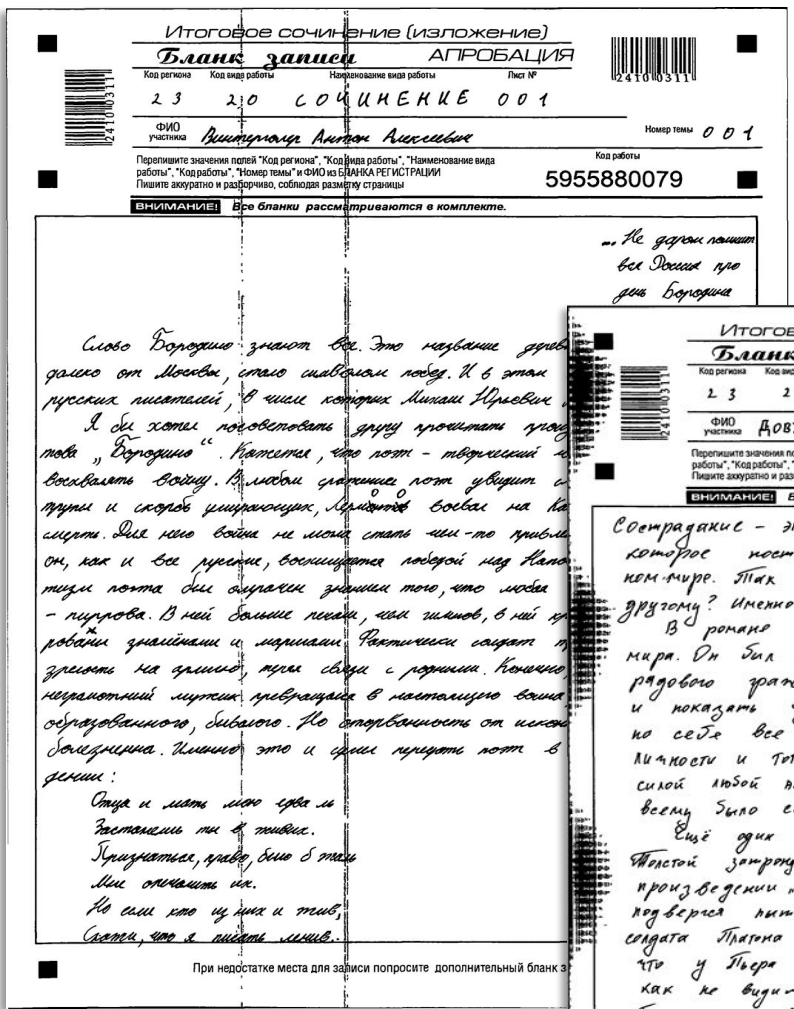 Итоговое сочинение (изложение)
Бланк записи АПРОБАЦИЯ
Код региона Код вида работы Наименование вида работы Лист №
2 3 2 0 СОЧИНЕНИЕ 0 0 1
2410 0311
2410 0311
ФИО участника Антон Алексеевич
Номер темы 0 0 1
Перепишите значения полей "Код региона", "Код вида работы", "Наименование вида
работы", "Код работы", "Номер темы" и ФИО из БЛАНКА РЕГИСТРАЦИИ
Пишите аккуратно и разборчиво, соблюдая разметку страницы
Код работы
5955880079
ВНИМАНИЕ! Все бланки рассматриваются в комплекте.
... Не даром помнит
вся Россия про
день Бородина
Слово Бородино знают все. Это название
далеко от Москвы, стало символом побед. И в этом
русских писателей, в числе которых Михаил Юрьевич
Я бы хотел посоветовать другу прочитать
това „Бородино“. Кажется, что поэт - творческий
восхвалять войну. В любом сражении поэт увидит
трупы и скорбь умирающих, Лермонтов воевал на
смерти. Для него война не могла стать чем-то
он, как и все русские, восхищается победой над
поэта был омрачен знанием того, что любая
- пиррова. В ней больше печали, чем гимнов, в ней
и маршами. Фактически солдат
зрелость на армию, теряя связи с родными. Конечно,
неграмотный мужик превращался в настоящего воина
образованного, бывалого. Но оторванность от
болезненна. Именно это и сумел передать поэт в
дении:
Отца и мать мою едва ль
Застанешь ты в живых.
Признаться, право, было б жаль
Мне опечалить их.
Но если кто из них и жив,
Скажи, что я писать ленив.
При недостатке места для записи попросите дополнительный бланк з
Итогов
Бланк
Код региона Код вид
2 3 2
ФИО участника Дов
Перепишите значения по
работы", "Код работы", "
Пишите аккуратно и раз
ВНИМАНИЕ! В
Сострадание - э
которое пост
ном мире. Так
другому? Именно
В романе
мира. Он был
рядового граж
и показать
на себе все
личности и тол
силой любой
всему было с
Ещё один
Толстой затрон
произведении
подвергся пыт
солдата Платона
что у Пьера
как не видит